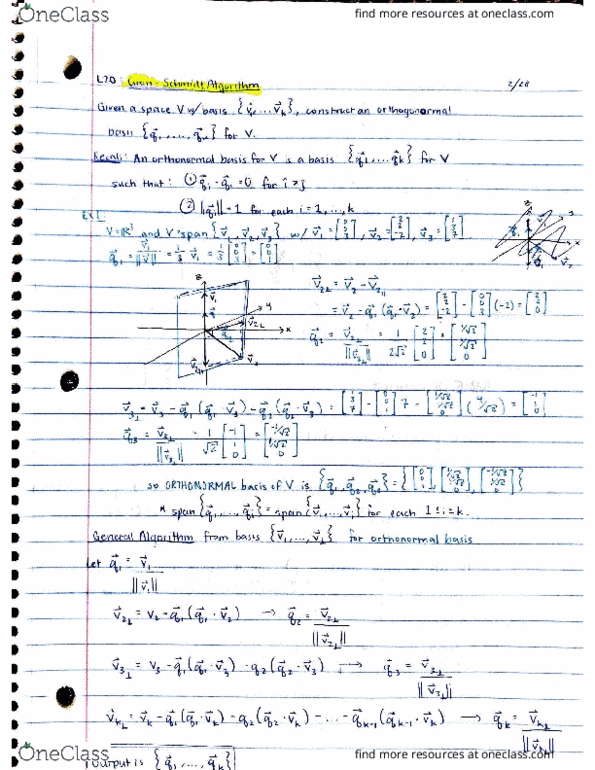 OneClass
find more resources at oneclass.com
L20: Gram-Schmidt Algorithm 2/28
Given a space V w/ basis {v⃗₁ ... v⃗ₖ}, construct an orthogonormal
basis {q⃗₁, ..., q⃗ₖ} for V.
Recall: An orthonormal basis for V is a basis {q⃗₁, ..., q⃗ₖ} for V
such that: ① q⃗ᵢ · q⃗ⱼ = 0 for i ≠ j
② ||q⃗ᵢ|| = 1 for each i = 1, ..., k
Ex 1
V = ℝ³ and V = span{v⃗₁, v⃗₂, v⃗₃} w/ v⃗₁ = [0 0 3], v⃗₂ = [2 2 -2], v⃗₃ = [1 3 7]
q⃗₁ = v⃗₁/||v⃗₁|| = 1/3 v⃗₁ = 1/3 [0 0 3] = [0 0 1]
v⃗₂⊥ = v⃗₂ - v⃗₂∥
= v⃗₂ - q⃗₁(q⃗₁·v⃗₂) = [2 2 -2] - [0 0 1](-2) = [2 2 0]
q⃗₂ = v⃗₂⊥/||v⃗₂⊥|| = 1/2√2 [2 2 0] = [1/√2 1/√2 0]
v⃗₃⊥ = v⃗₃ - q⃗₁(q⃗₁·v⃗₃) - q⃗₂(q⃗₂·v⃗₃) = [1 3 7] - [0 0 1]7 - [1/√2 1/√2 0](4/√2) = [-1 1 0]
q⃗₃ = v⃗₃⊥/||v⃗₃⊥|| = 1/√2 [-1 1 0] = [-1/√2 1/√2 0]
so ORTHONORMAL basis of V is {q⃗₁, q⃗₂, q⃗₃} = {[0 0 1], [1/√2 1/√2 0], [-1/√2 1/√2 0]}
* span{q⃗₁, ..., q⃗ᵢ} = span{v⃗₁, ..., v⃗ᵢ} for each 1 ≤ i ≤ k.
General Algorithm from basis {v⃗₁, ..., v⃗ₖ} for orthonormal basis
Let q⃗₁ = v⃗₁/||v⃗₁||
v⃗₂⊥ = v₂ - q⃗₁(q⃗₁·v⃗₂) → q⃗₂ = v⃗₂⊥/||v⃗₂⊥||
v⃗₃⊥ = v₃ - q⃗₁(q⃗₁·v⃗₃) - q₂(q⃗₂·v⃗₃) → q⃗₃ = v⃗₃⊥/||v⃗₃⊥||
v⃗ₖ⊥ = v⃗ₖ - q⃗₁(q⃗₁·v⃗ₖ) - q₂(q⃗₂·v⃗ₖ) - ... - q⃗ₖ₋₁(q⃗ₖ₋₁·v⃗ₖ) → q⃗ₖ = v⃗ₖ⊥/||v⃗ₖ⊥||
Output is {q⃗₁, ..., q⃗ₖ}
OneClass
find more resources at oneclass.com